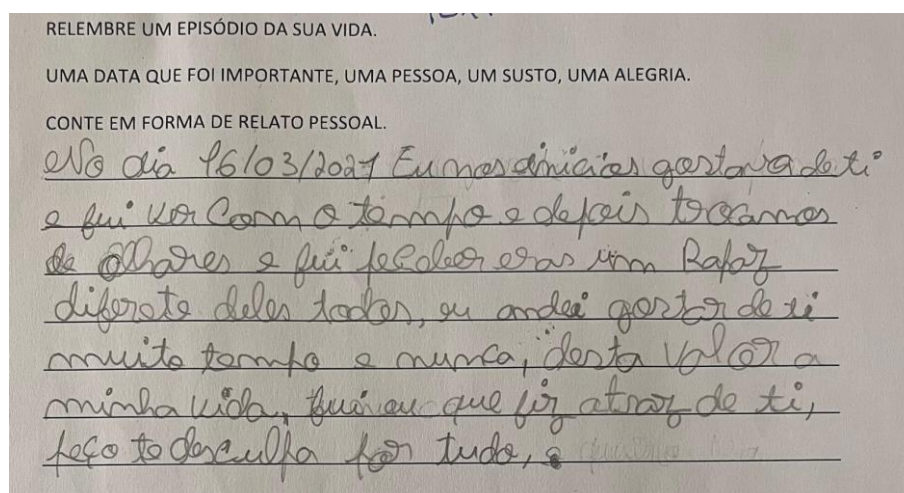 RELEMBRE UM EPISÓDIO DA SUA VIDA.
UMA DATA QUE FOI IMPORTANTE, UMA PESSOA, UM SUSTO, UMA ALEGRIA.
CONTE EM FORMA DE RELATO PESSOAL.
No dia 16/03/2021 Eu nos inicios gostava de ti
e fui ver com o tempo e depois trocamos
de olhares e fui perceber eras um Rapaz
diferete deles todos, eu andei gostar de ti
muito tempo e nunca, desta valor a
minha vida, fui eu que fiz atraz de ti,
peço te desculpa por tudo, e